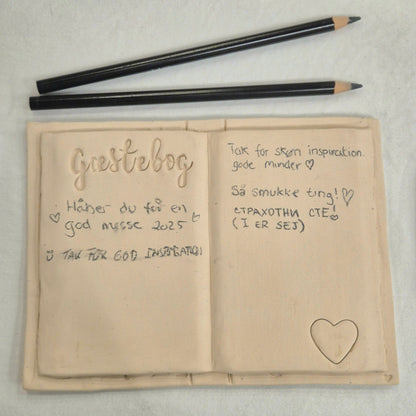 Gæstebog
Håber du får en
god messe 2025
TAK FOR GOD INSPIRATION
Tak for skøn inspiration.
gode minder
Så smukke ting!
СТРАХОТНИ СТЕ!
(I ER SEJ)